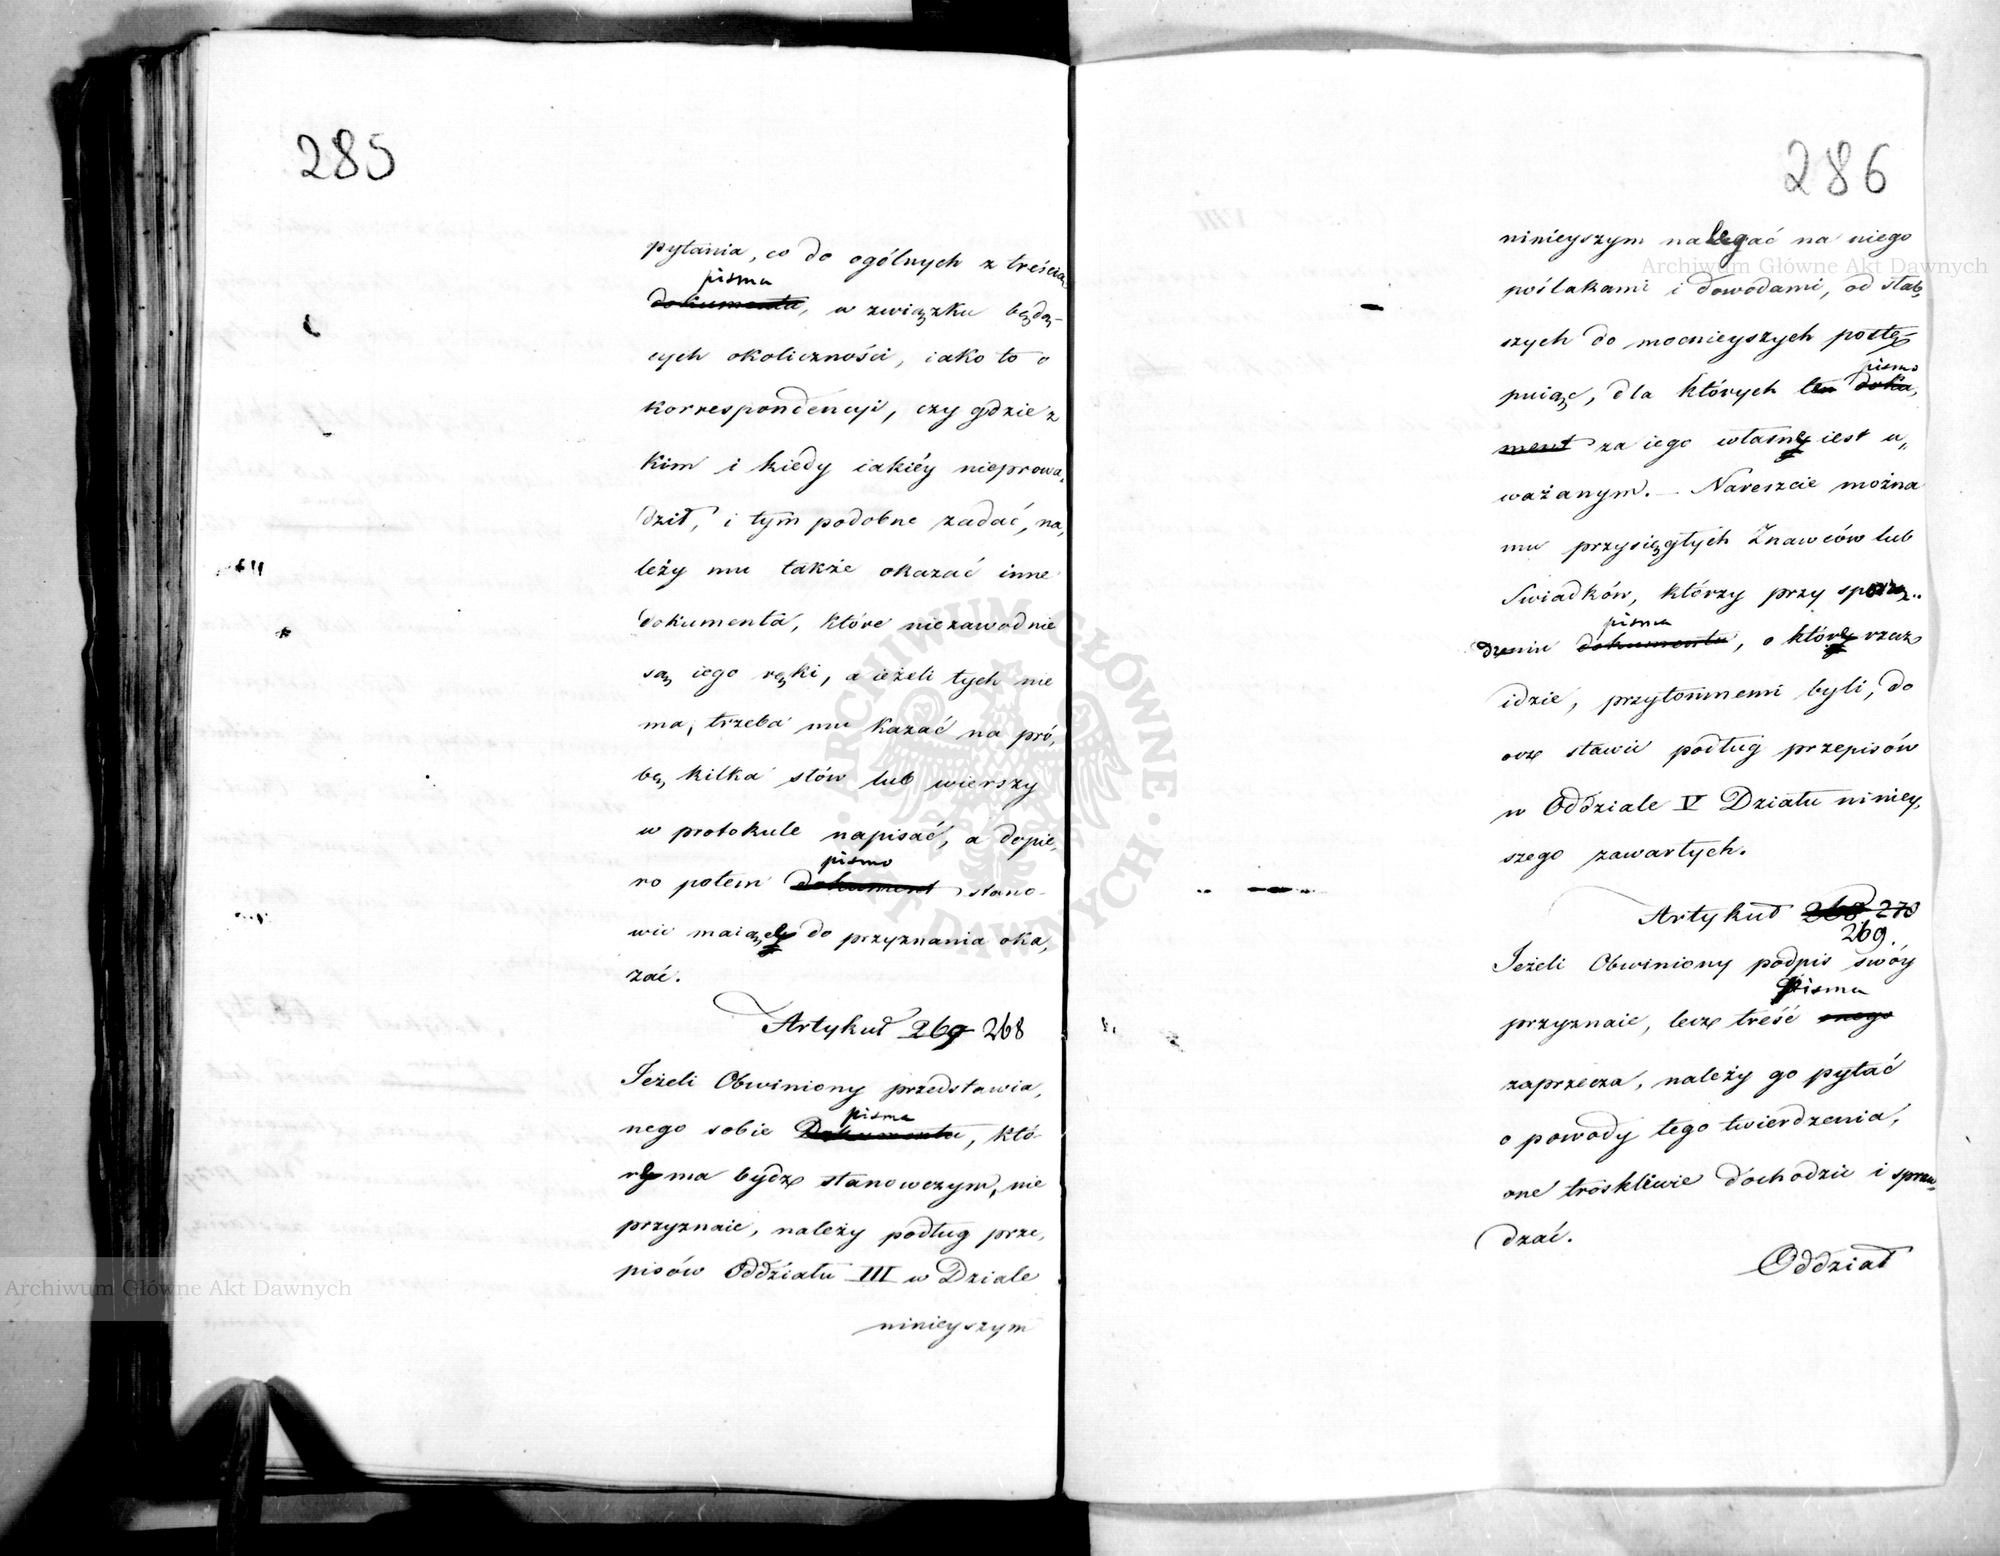 285
pytania, co do ogólnych z treścią
pisma
dokumentu, w związku będą-
cych okoliczności, iako to o
korrespondencyi, czy gdzie z
kim i kiedy iakiéy nieprowa,
dził, i tym podobne zadać, na,
leży mu także okazać inne
dokumenta, które niezawodnie
są iego ręki, a ieżeli tych nie
ma, trzeba mu kazać na pró,
bę kilka słów lub wierszy
w protokule napisać, a dopie,
pismo
ro potem dokument stano-
wić maiące do przyznania oka,
zać.
Artykuł 269 268
Jeżeli Obwiniony przedstawia,
pisma
nego sobie Dokumentu, któ
re ma bydź stanowczym, nie
przyznaie, należy podług prze,
pisów Oddziału III w Dziale
ninieyszym
286
ninieyszym nalegać na niego
poślakami i dowodami, od słab,
szych do mocnieyszych postę,
pismo
puiąc, dla których ten doku,
ment za iego własne iest u,,
ważanym. – Nareszcie można
mu przysięgłych Znawców lub
Swiadków, którzy przy sporzą..
pisma
dzeniu dokumentu, o które rzecz
idzie, przytomnemi byli, do
ocz stawić podług przepisów
w Oddziale IV Działu niniey,
szego zawartych.
Artykuł 268 270
269.
Jeżeli Obwiniony podpis swóy
Pisma
przyznaie, lecz treść onego
zaprzecza, należy go pytać
o powody tego twierdzenia,
one troskliwie dochodzić i spraw-
dzać.
Oddział
Archiwum Główne Akt Dawnych
Archiwum Główne Akt Dawnych
ARCHIWUM GŁÓWNE AKT DAWNYCH